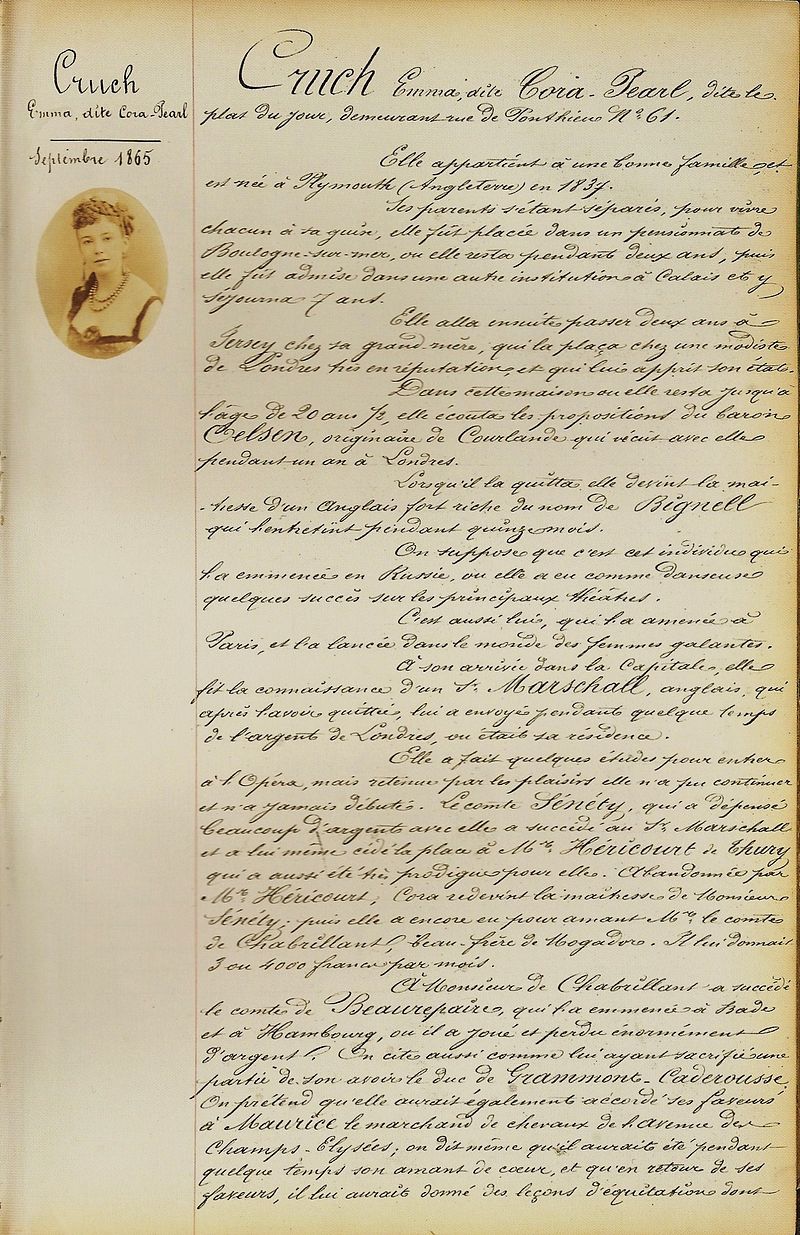 Cruch
Emma, dite Cora-Pearl
Septembre 1865
Cruch Emma, dite Cora-Pearl, dite le
plat du jour, demeurant rue de Ponthieu No. 61.
Elle appartient à une bonne famille, et
est née à Plymouth (Angleterre) en 1837.
Ses parents s'étant séparés, pour vivre
chacun à sa guise, elle fut placée dans un pensionnat de
Boulogne-sur-mer, où elle resta pendant deux ans, puis
elle fut admise dans une autre institution à Calais et y
séjourna 7 ans.
Elle alla ensuite passer deux ans à
Jersey chez sa grand-mère, qui la plaça chez une modiste
de Londres très en réputation et qui lui apprit son état.
Dans cette maison où elle resta jusqu'à
l'âge de 20 ans 1/2, elle écouta les propositions du baron
Oelsen, originaire de Courlande qui vécut avec elle
pendant un an à Londres.
Lorsqu'il la quitta elle devint la maî-
-tresse d'un anglais fort riche du nom de Bignell
qui l'entretint pendant quinze mois.
On suppose que c'est cet individu qui
l'a emmenée en Russie, où elle a eu comme danseuse
quelques succès sur les principaux théâtres.
C'est aussi lui, qui l'a amenée à
Paris, et l'a lancée dans le monde des femmes galantes.
À son arrivée dans la Capitale, elle
fit la connaissance d'un Sr. Marschall, anglais, qui
après l'avoir quittée, lui a envoyé pendant quelque temps
de l'argent de Londres, où était sa résidence.
Elle a fait quelques études pour entrer
à l'Opéra, mais retenue par les plaisirs elle n'a pu continuer
et n'a jamais débuté. Le comte Sénéty, qui a dépensé
beaucoup d'argent avec elle a succédé au Sr. Marschall
et a lui même cédé la place à Mr. Héricourt de Thury
qui a aussi été très prodigue pour elle. Abandonnée par
Mr. Héricourt, Cora redevint la maîtresse de Monsieur
Sénéty; puis elle a encore eu pour amant Mr. le comte
de Chabrillant, beau-frère de Mogador. Il lui donnait
3 ou 4000 francs par mois.
À Monsieur de Chabrillant a succédé
le comte de Beaurepaire, qui l'a emmenée à Bade
et à Hambourg, où il a joué et perdu énormément
d'argent. On cite aussi comme lui ayant sacrifié une
partie de son avoir le duc de Grammont-Caderousse.
On prétend qu'elle aurait également accordé ses faveurs
à Maurice le marchand de chevaux de l'avenue des
Champs-Elysées; on dit même qu'il aurait été pendant
quelque temps son amant de cœur, et qu'en retour de ses
faveurs, il lui aurait donné des leçons d'équitation dont